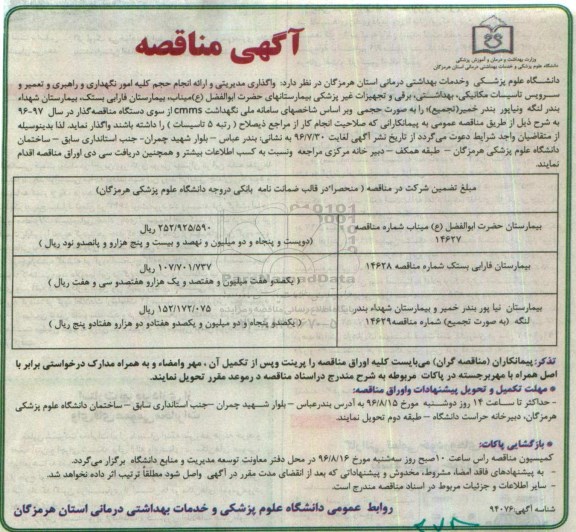 وزارت بهداشت و درمان و آموزش پزشکی
دانشگاه علوم پزشکی و خدمات بهداشتی درمانی استان هرمزگان
آگهی مناقصه
دانشگاه علوم پزشکی وخدمات بهداشتی درمانی استان هرمزگان در نظر دارد: واگذاری مدیریتی و ارائه انجام حجم کلیه امور نگهداری و راهبری و تعمیر و
سرویس تاسیسات مکانیکی، بهداشتی، برقی و تجهیزات غیر پزشکی بیمارستانهای حضرت ابوالفضل (ع)میناب، بیمارستان فارابی بستک، بیمارستان شهداء
بندر لنگه ونیاپور بندر خمیر(تجمیع) را به صورت حجمی وبر اساس شاخصهای سامانه ملی نگهداشت cmms از سوی دستگاه مناقصه‌گذار در سال ۹۷-۹۶
به شرح ذیل از طریق مناقصه عمومی به پیمانکارانی که صلاحیت انجام کار از مراجع ذیصلاح ( رتبه ۵ تاسیسات ) را داشته باشند واگذار نماید. لذا بدینوسیله
از متقاضیان واجد شرایط دعوت می‌گردد از تاریخ نشر آگهی لغایت ۹۶/۷/۳۰ به نشانی: بندر عباس – بلوار شهید چمران- جنب استانداری سابق – ساختمان
دانشگاه علوم پزشکی هرمزگان – طبقه همکف – دبیر خانه مرکزی مراجعه ونسبت به کسب اطلاعات بیشتر و همچنین دریافت سی دی اوراق مناقصه اقدام
نمایند.
مبلغ تضمین شرکت در مناقصه ( منحصرا"در قالب ضمانت نامه بانکی دروجه دانشگاه علوم پزشکی هرمزگان)
بیمارستان حضرت ابوالفضل (ع) میناب شماره مناقصه ۱۴۶۲۷
۲۵۲/۹۲۵/۵۹۰ ریال
(دویست و پنجاه و دو میلیون و نهصد و بیست و پنج هزارو و پانصدو نود ریال )
بیمارستان فارابی بستک شماره مناقصه ۱۴۶۲۸
۱۰۷/۷۰۱/۷۳۷ ریال
( یکصدو هفت میلیون و هفتصد و یک هزارو هفتصدو سی و هفت ریال )
بیمارستان نیا پور بندر خمیر و بیمارستان شهداء بندر
لنگه (به صورت تجمیع) شماره مناقصه۱۴۶۲۹
۱۵۲/۱۷۲/۰۷۵ ریال
( یکصدو پنجاه و دو میلیون و یکصدو هفتادو دو هزارو هفتادو پنج ریال )
تذکر: پیمانکاران (مناقصه گران) می‌بایست کلیه اوراق مناقصه را پرینت وپس از تکمیل آن ، مهر وامضاء و به همراه مدارک درخواستی برابر با
اصل همراه با مهربرجسته در پاکات مربوطه به شرح مندرج دراسناد مناقصه د رموعد مقرر تحویل نمایند.
* مهلت تکمیل و تحویل پیشنهادات واوراق مناقصه:
- حداکثر تا ساعت ۱۴ روز دوشنبه مورخ ۹۶/۸/۱۵ به آدرس بندرعباس – بلوار شهید چمران –جنب استانداری سابق – ساختمان دانشگاه علوم پزشکی
هرمزگان، دبیرخانه حراست دانشگاه – طبقه دوم تحویل نمایند.
* بازگشایی پاکات:
کمیسیون مناقصه راس ساعت ۱۰صبح روز سه‌شنبه مورخ ۹۶/۸/۱۶ در محل دفتر معاونت توسعه مدیریت و منابع دانشگاه برگزار می‌گردد.
- به پیشنهادهای فاقد امضا، مشروط، مخدوش و پیشنهاداتی که بعد از انقضای مدت مقرر در آگهی واصل شود مطلقاً ترتیب اثر داده نخواهد شد.
- سایر اطلاعات و جزئیات مربوط در اسناد مناقصه مندرج است.
شناسه آگهی:۹۴۰۷۶
روابط عمومی دانشگاه علوم پزشکی و خدمات بهداشتی درمانی استان هرمزگان